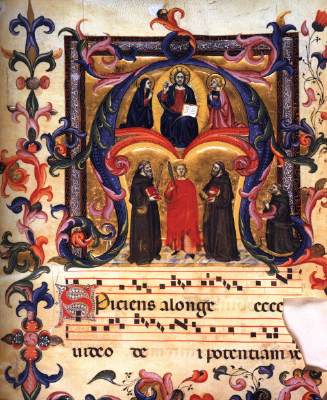 ASpiciens alonge ecce
uideo de i potentiam ue